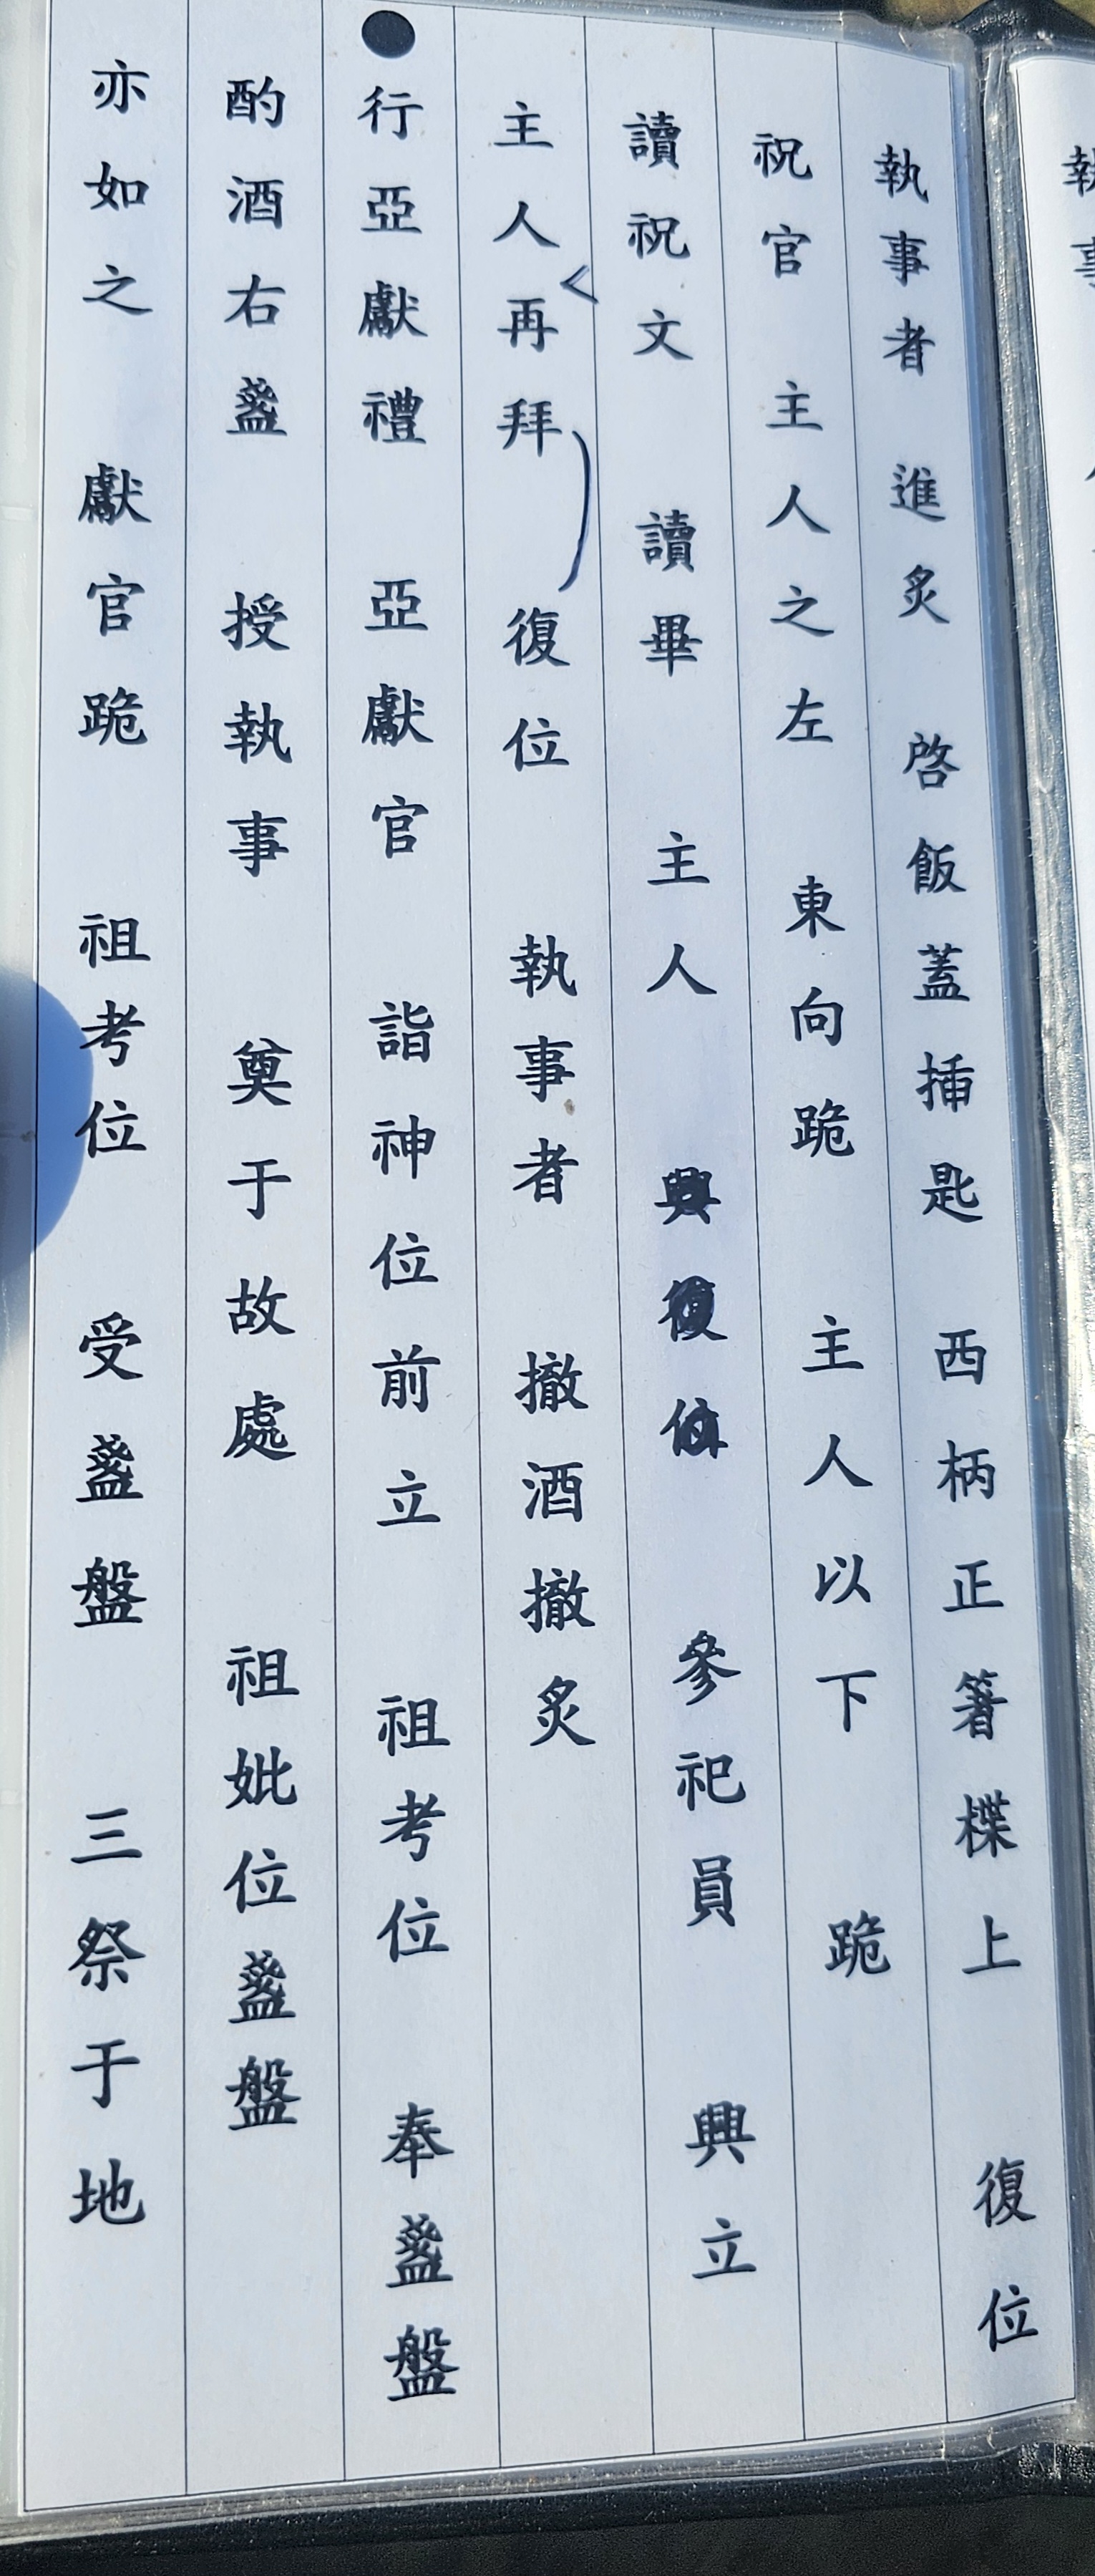 執事者 進炙 啓飯蓋挿匙 西柄正箸楪上 復位
祝官 主人之左 東向跪 主人以下 跪
讀祝文 讀畢 主人 興復位 參祀員 興立
主人再拜 復位 執事者 撤酒撤炙
●行亞獻禮 亞獻官 詣神位前立 祖考位 奉盞盤
酌酒右盞 授執事 奠于故處 祖妣位盞盤
亦如之 獻官跪 祖考位 受盞盤 三祭于地
執事